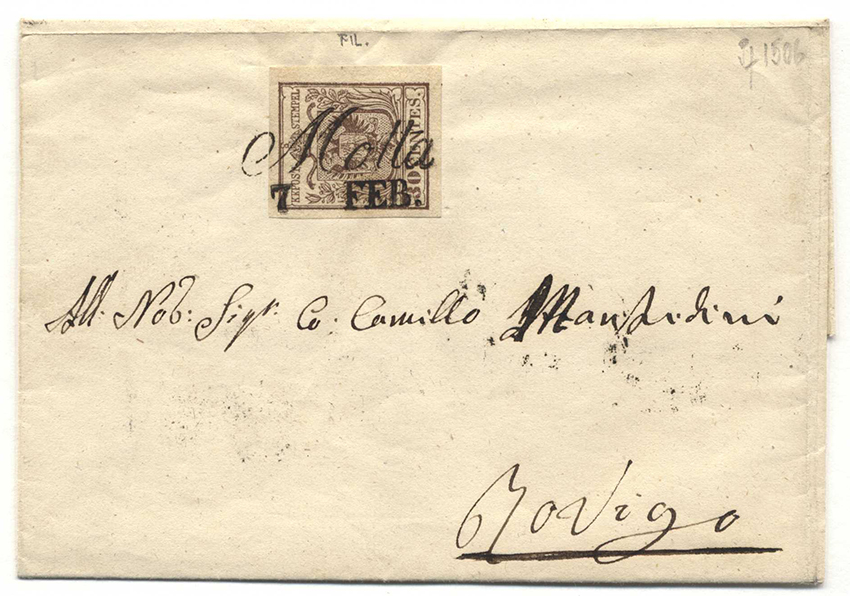 FIL.
1506
KKPOST-STEMPEL
30 CENTES.
Motta
7 FEB.
All. Nob: Sigr. Co. Camillo Manfredini
Rovigo